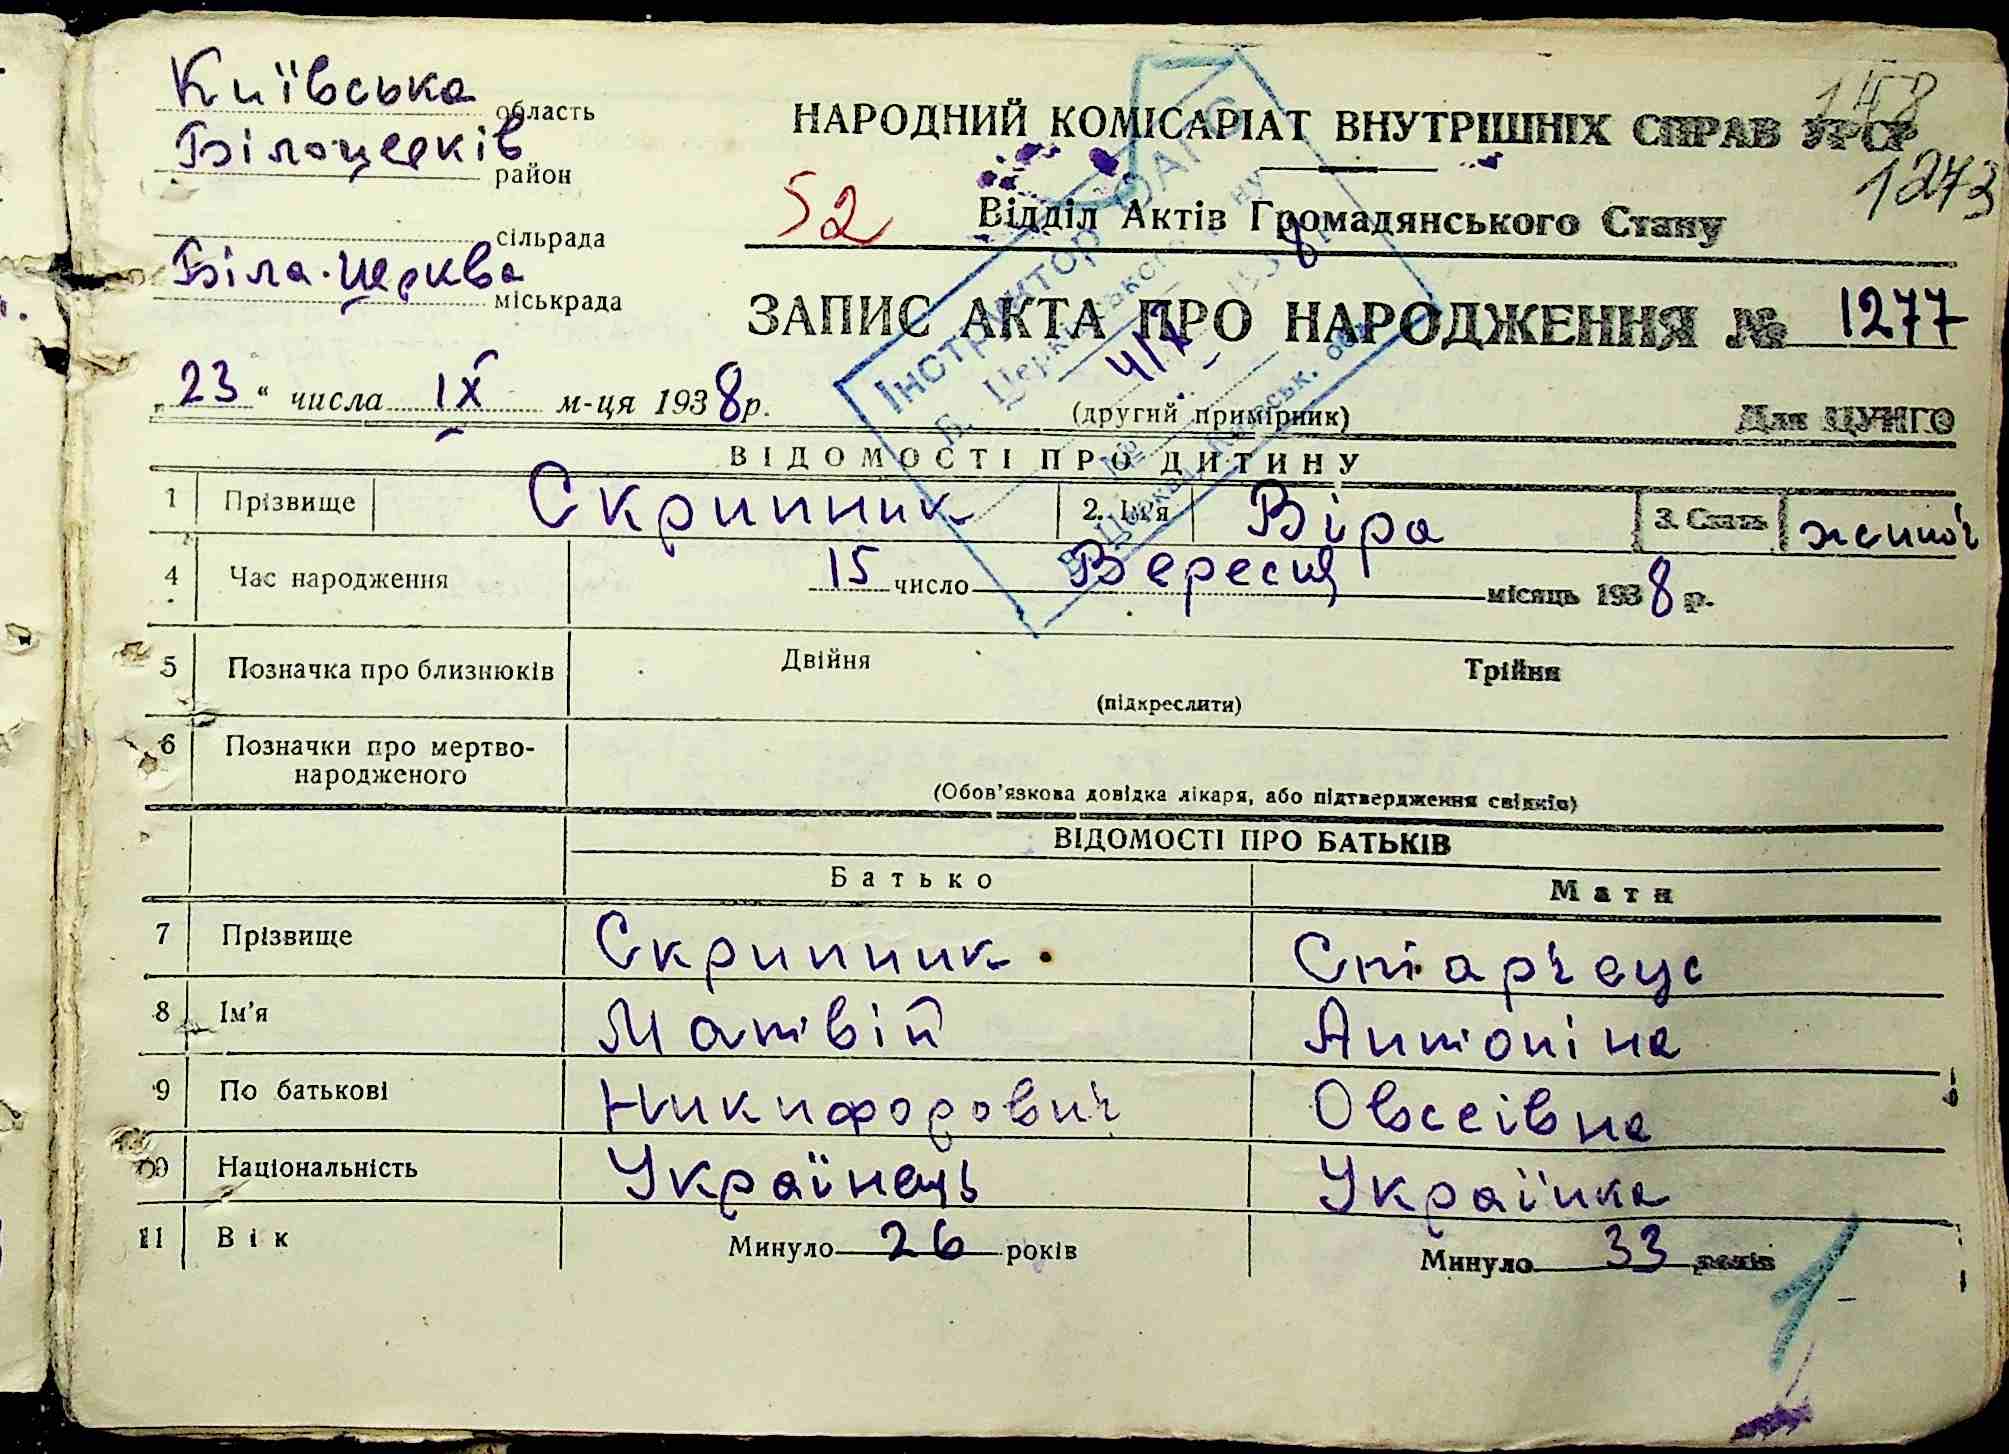 Київська область
Білоцерків район
сільрада
Біла-Церква міськрада
НАРОДНИЙ КОМІСАРІАТ ВНУТРІШНІХ СПРАВ УРСР
148
1273
52
Відділ Актів Громадянського Стану
ЗАПИС АКТА ПРО НАРОДЖЕННЯ № 1277
„23“ числа IX м-ця 1938 р.
(другий примірник)
Для ЦУНГО
Інструктор ОАГС
ВІДОМОСТІ ПРО ДИТИНУ
1 Прізвище Скрипник 2. Ім'я Віра 3. Стать жиноч
4 Час народження 15 число Вересня місяць 1938 р.
5 Позначка про близнюків Двійня Трійня
(підкреслити)
6 Позначки про мертво-
народженого
(Обов'язкова довідка лікаря, або підтвердження свідків)
ВІДОМОСТІ ПРО БАТЬКІВ
Батько Мати
7 Прізвище Скрипник
8 Ім'я Матвій Антоніна
9 По батькові Никифорович Овсеівна
10 Національність Українець Українка
11 Вік Минуло 26 років Минуло 33 років
1